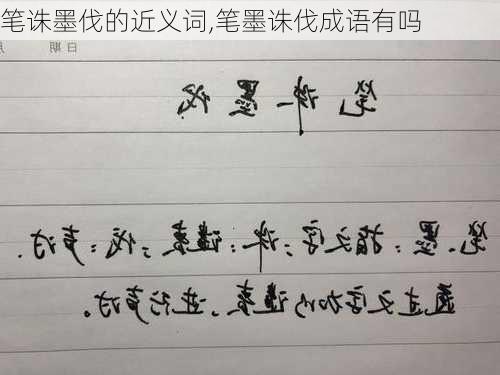 笔诛墨伐的近义词,笔墨诛伐成语有吗
日期
笔诛墨伐
笔、墨:指文字;诛:谴责;伐:声讨.
通过文字加以谴责、进行声讨。